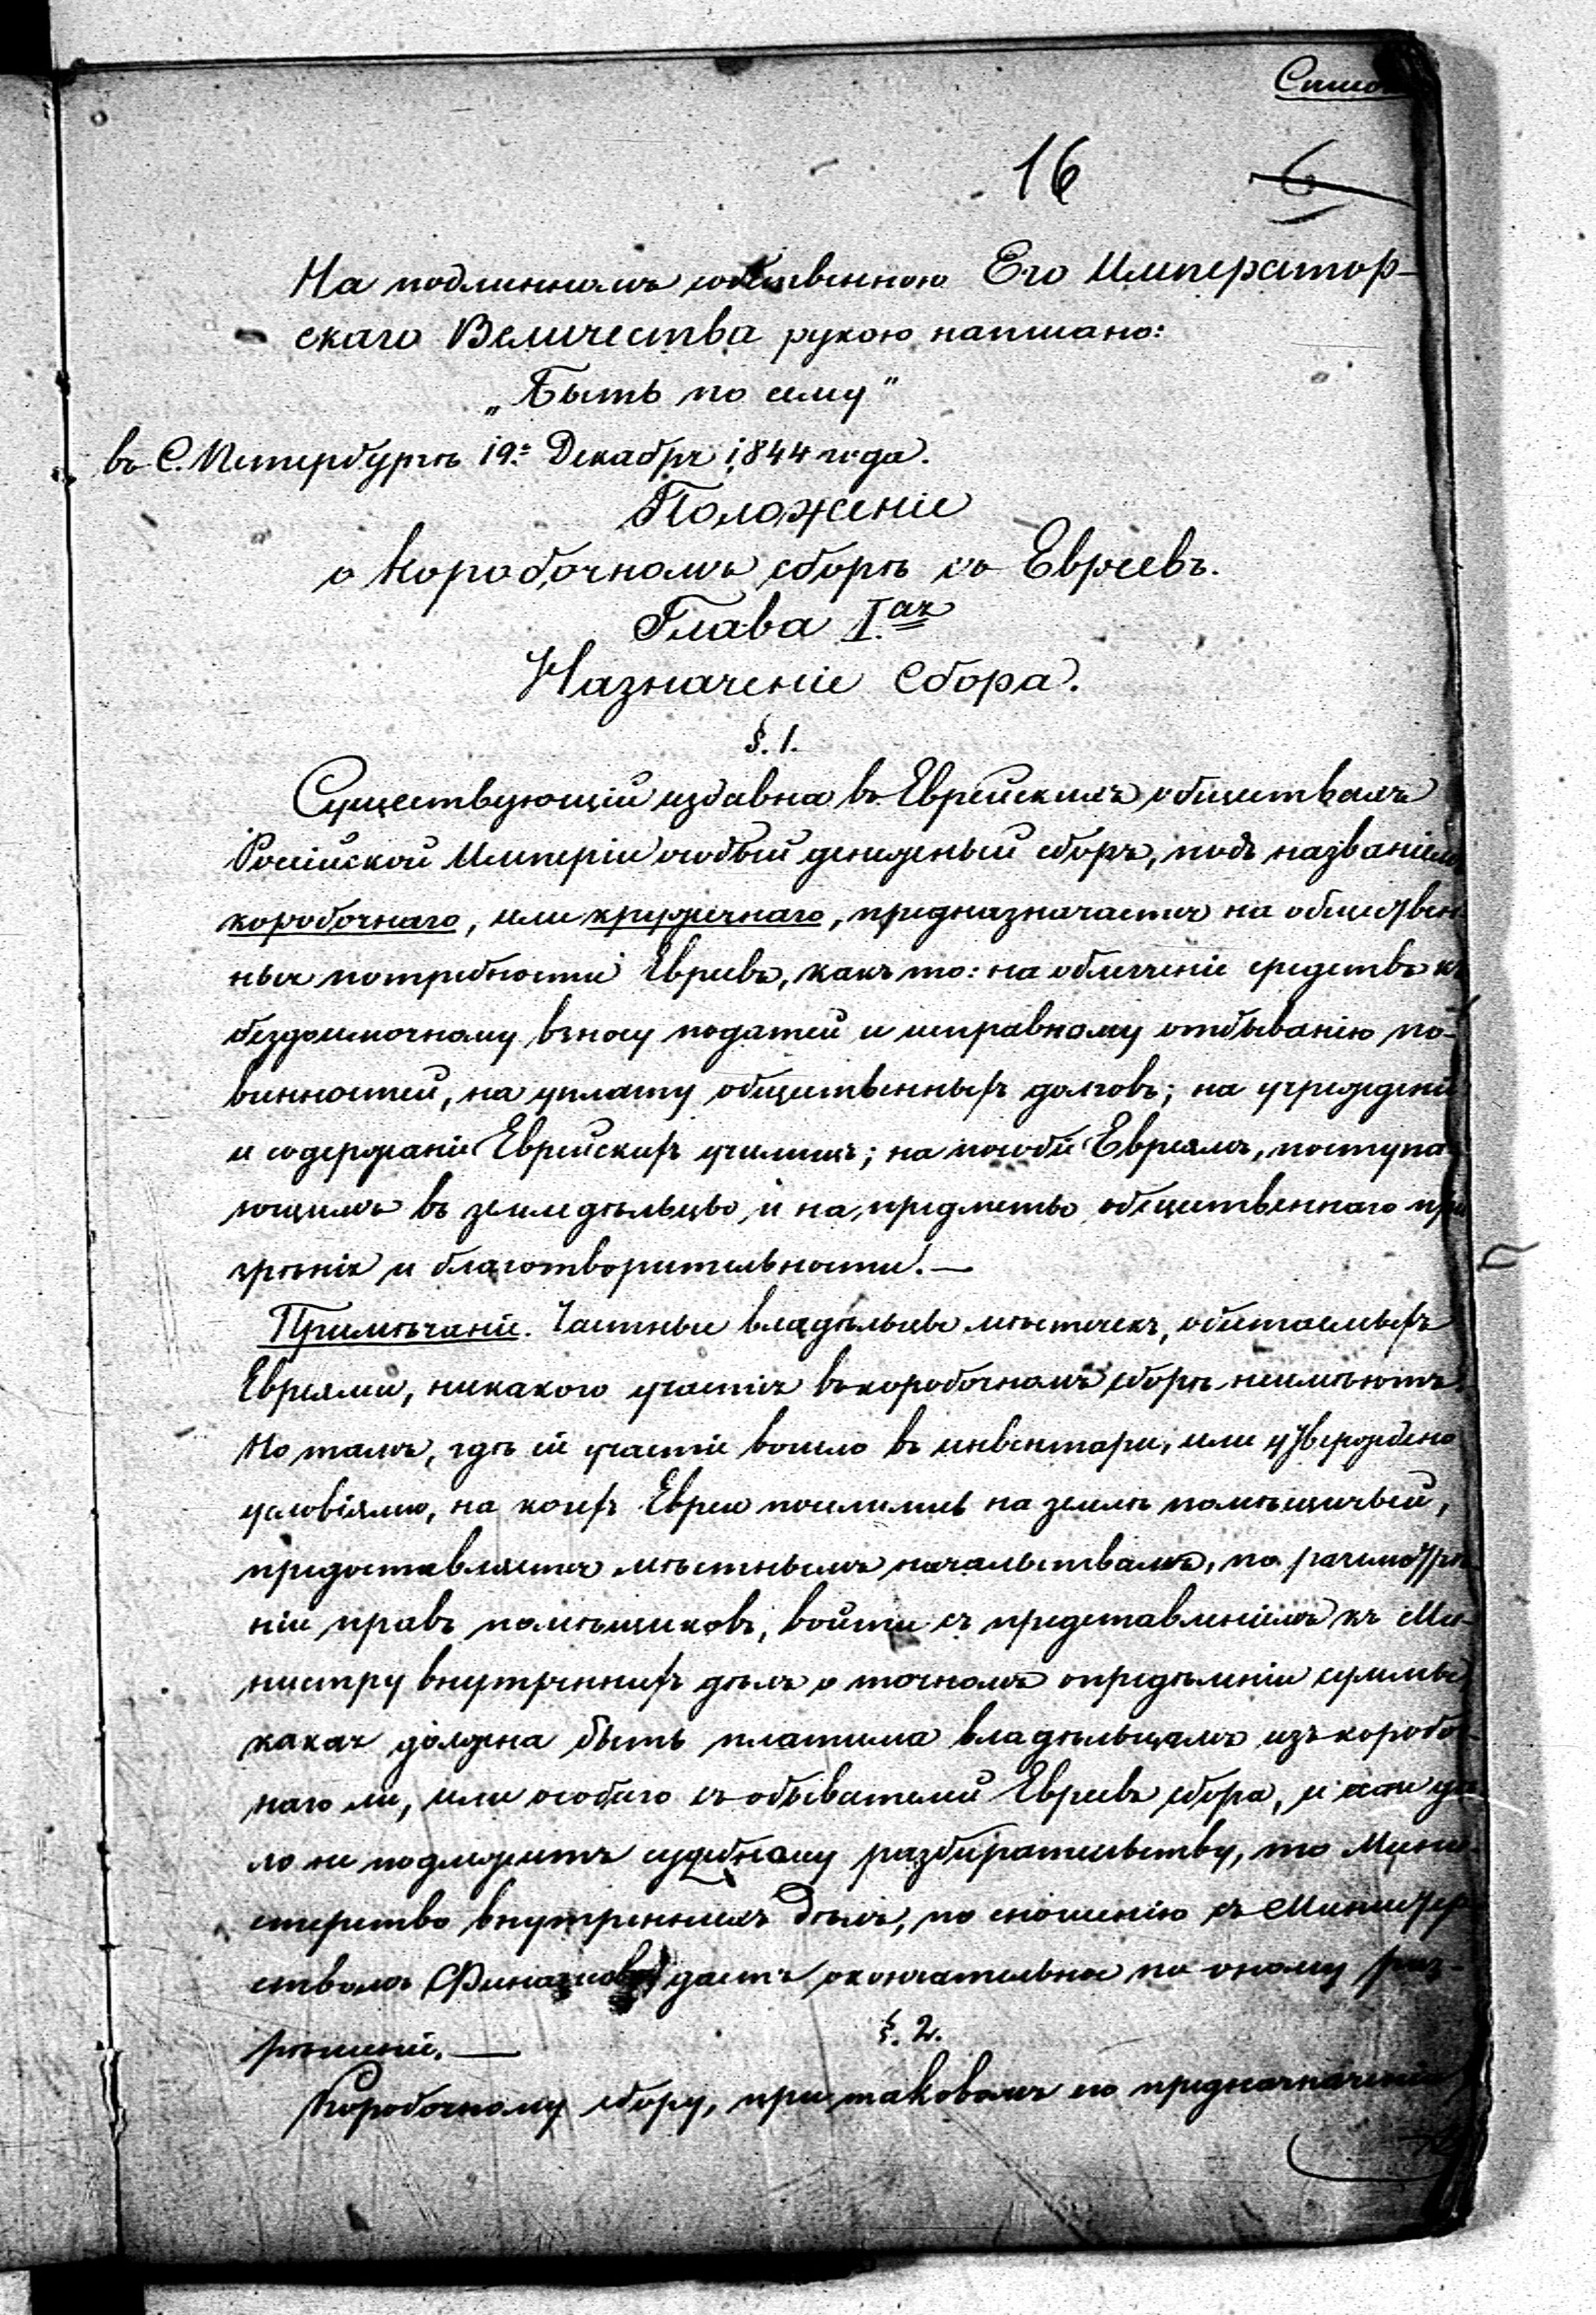 16 6
На подлинномъ собственною Его Император-
скаго Величества рукою написано:
„Быть по сему“
въ С. Петербургѣ 19го Декабря 1844 года.
Положеніе
о коробочномъ сборѣ съ Евреевъ.
Глава I.ая
Назначеніе Сбора.
§. 1.
Существующій издавна въ Еврейскихъ обществахъ
Россійской Имперіи особый денежный сборъ, подъ названіемъ
коробочнаго, или кружечнаго, предназначается на обществен
ныя потребности Евреевъ, какъ то: на облегченіе средствъ къ
бездоимочному взносу податей и исправному отбыванію по-
винностей, на уплату общественныхъ долговъ; на учрежденіе
и содержаніе Еврейскихъ училищъ; на пособіе Евреямъ, поступа
ющимъ въ земледѣльцы, и на предметы общественнаго при
зрѣнія и благотворительности.—
Примѣчаніе. Частные владѣльцы мѣстечекъ, обитаемыхъ
Евреями, никакого участія въ коробочномъ сборѣ неимѣютъ.
Но тамъ, гдѣ сіе участіе вошло въ инвентари, или утверждено
условіями, на коихъ Евреи поселились на землѣ помѣщичьей,
предоставляется мѣстнымъ начальствамъ, по разсмотрѣ
ніи правъ помѣщиковъ, войти съ представленіемъ къ Ми-
нистру внутреннихъ дѣлъ о точномъ опредѣленіи суммы
какая должна быть платима владѣльцамъ изъ короboч-
наго ли, или особаго съ обывателей Евреевъ сбора, и если дѣ
ло не подлежитъ судебному разбирательству, то Мини-
стерство внутреннихъ Дѣлъ, по сношенію съ Министер
ствомъ Финансовъ даетъ окончательное по оному раз-
рѣшеніе.—
§. 2.
Коробочному сбору, при таковомъ его предназначеніи